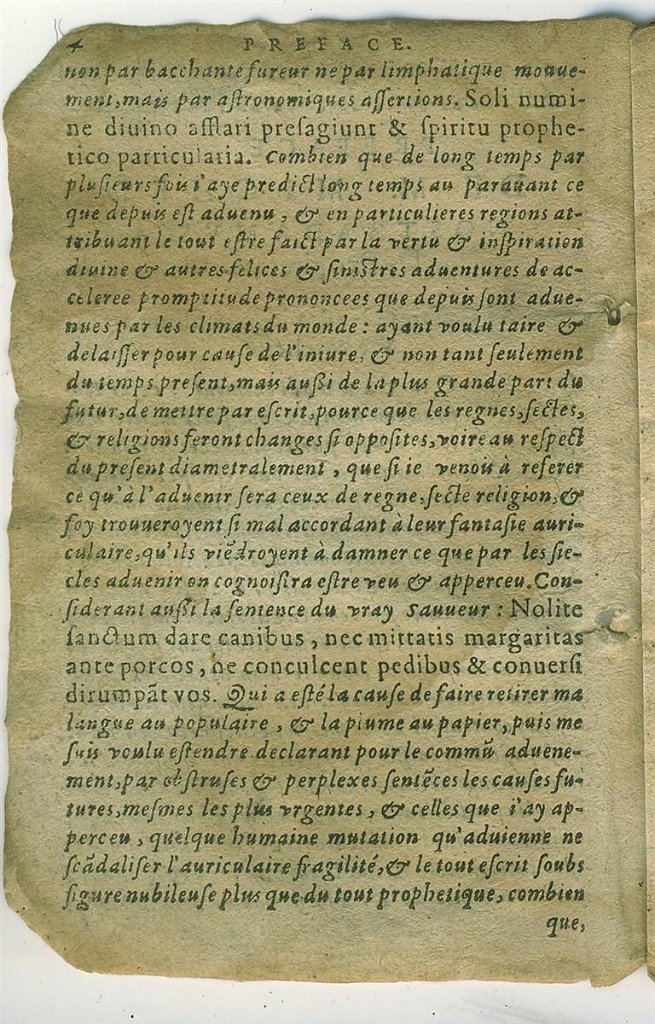 4 PREFACE.
non par bacchante fureur ne par limphatique mouue-
ment, mais par aſtronomiques aſſertions. Soli numi-
ne diuino afflari preſagiunt & ſpiritu prophe-
tico particularia. Combien que de long temps par
pluſieurs fois i'aye predict long temps au parauant ce
que depuis eſt aduenu, & en particulieres regions at-
tribuant le tout eſtre faict par la vertu & inſpiration
diuine & autres felices & ſiniſtres aduentures de ac-
celeree promptitude prononcees que depuis ſont adue-
nues par les climats du monde: ayant voulu taire &
delaiſſer pour cauſe de l'iniure, & non tant ſeulement
du temps preſent, mais außi de la plus grande part du
futur, de mettre par eſcrit, pource que les regnes, ſectes,
& religions feront changes ſi oppoſites, voire au reſpect
du preſent diametralement, que ſi ie venois à referer
ce qu'à l'aduenir ſera ceux de regne, ſecte religion, &
foy trouueroyent ſi mal accordant à leur fantaſie auri-
culaire, qu'ils viẽdroyent à damner ce que par les ſie-
cles aduenir on cognoiſtra eſtre veu & apperceu. Con-
ſiderant außi la ſentence du vray Sauueur: Nolite
ſanctum dare canibus, nec mittatis margaritas
ante porcos, ne conculcent pedibus & conuerſi
dirumpãt vos. Qui a eſté la cauſe de faire retirer ma
langue au populaire, & la plume au papier, puis me
ſuis voulu eſtendre declarant pour le commũ aduene-
ment, par obſtruſes & perplexes ſentẽces les cauſes fu-
tures, meſmes les plus vrgentes, & celles que i'ay ap-
perceu, quelque humaine mutation qu'aduienne ne
ſcãdaliſer l'auriculaire fragilité, & le tout eſcrit ſoubs
figure nubileuſe plus que du tout prophetique, combien
que,